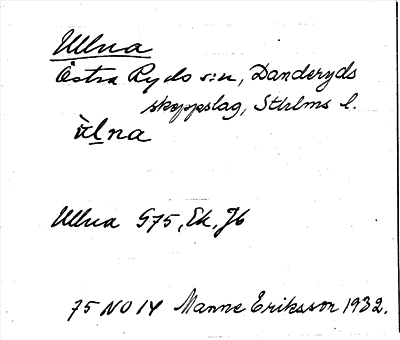 Ullna
Östra Ryds s:n, Danderyds
skeppslag, Sthlms l.
ùl̲na
Ullna G75, Ek, Jb
75 NO 14 Manne Eriksson 1932.